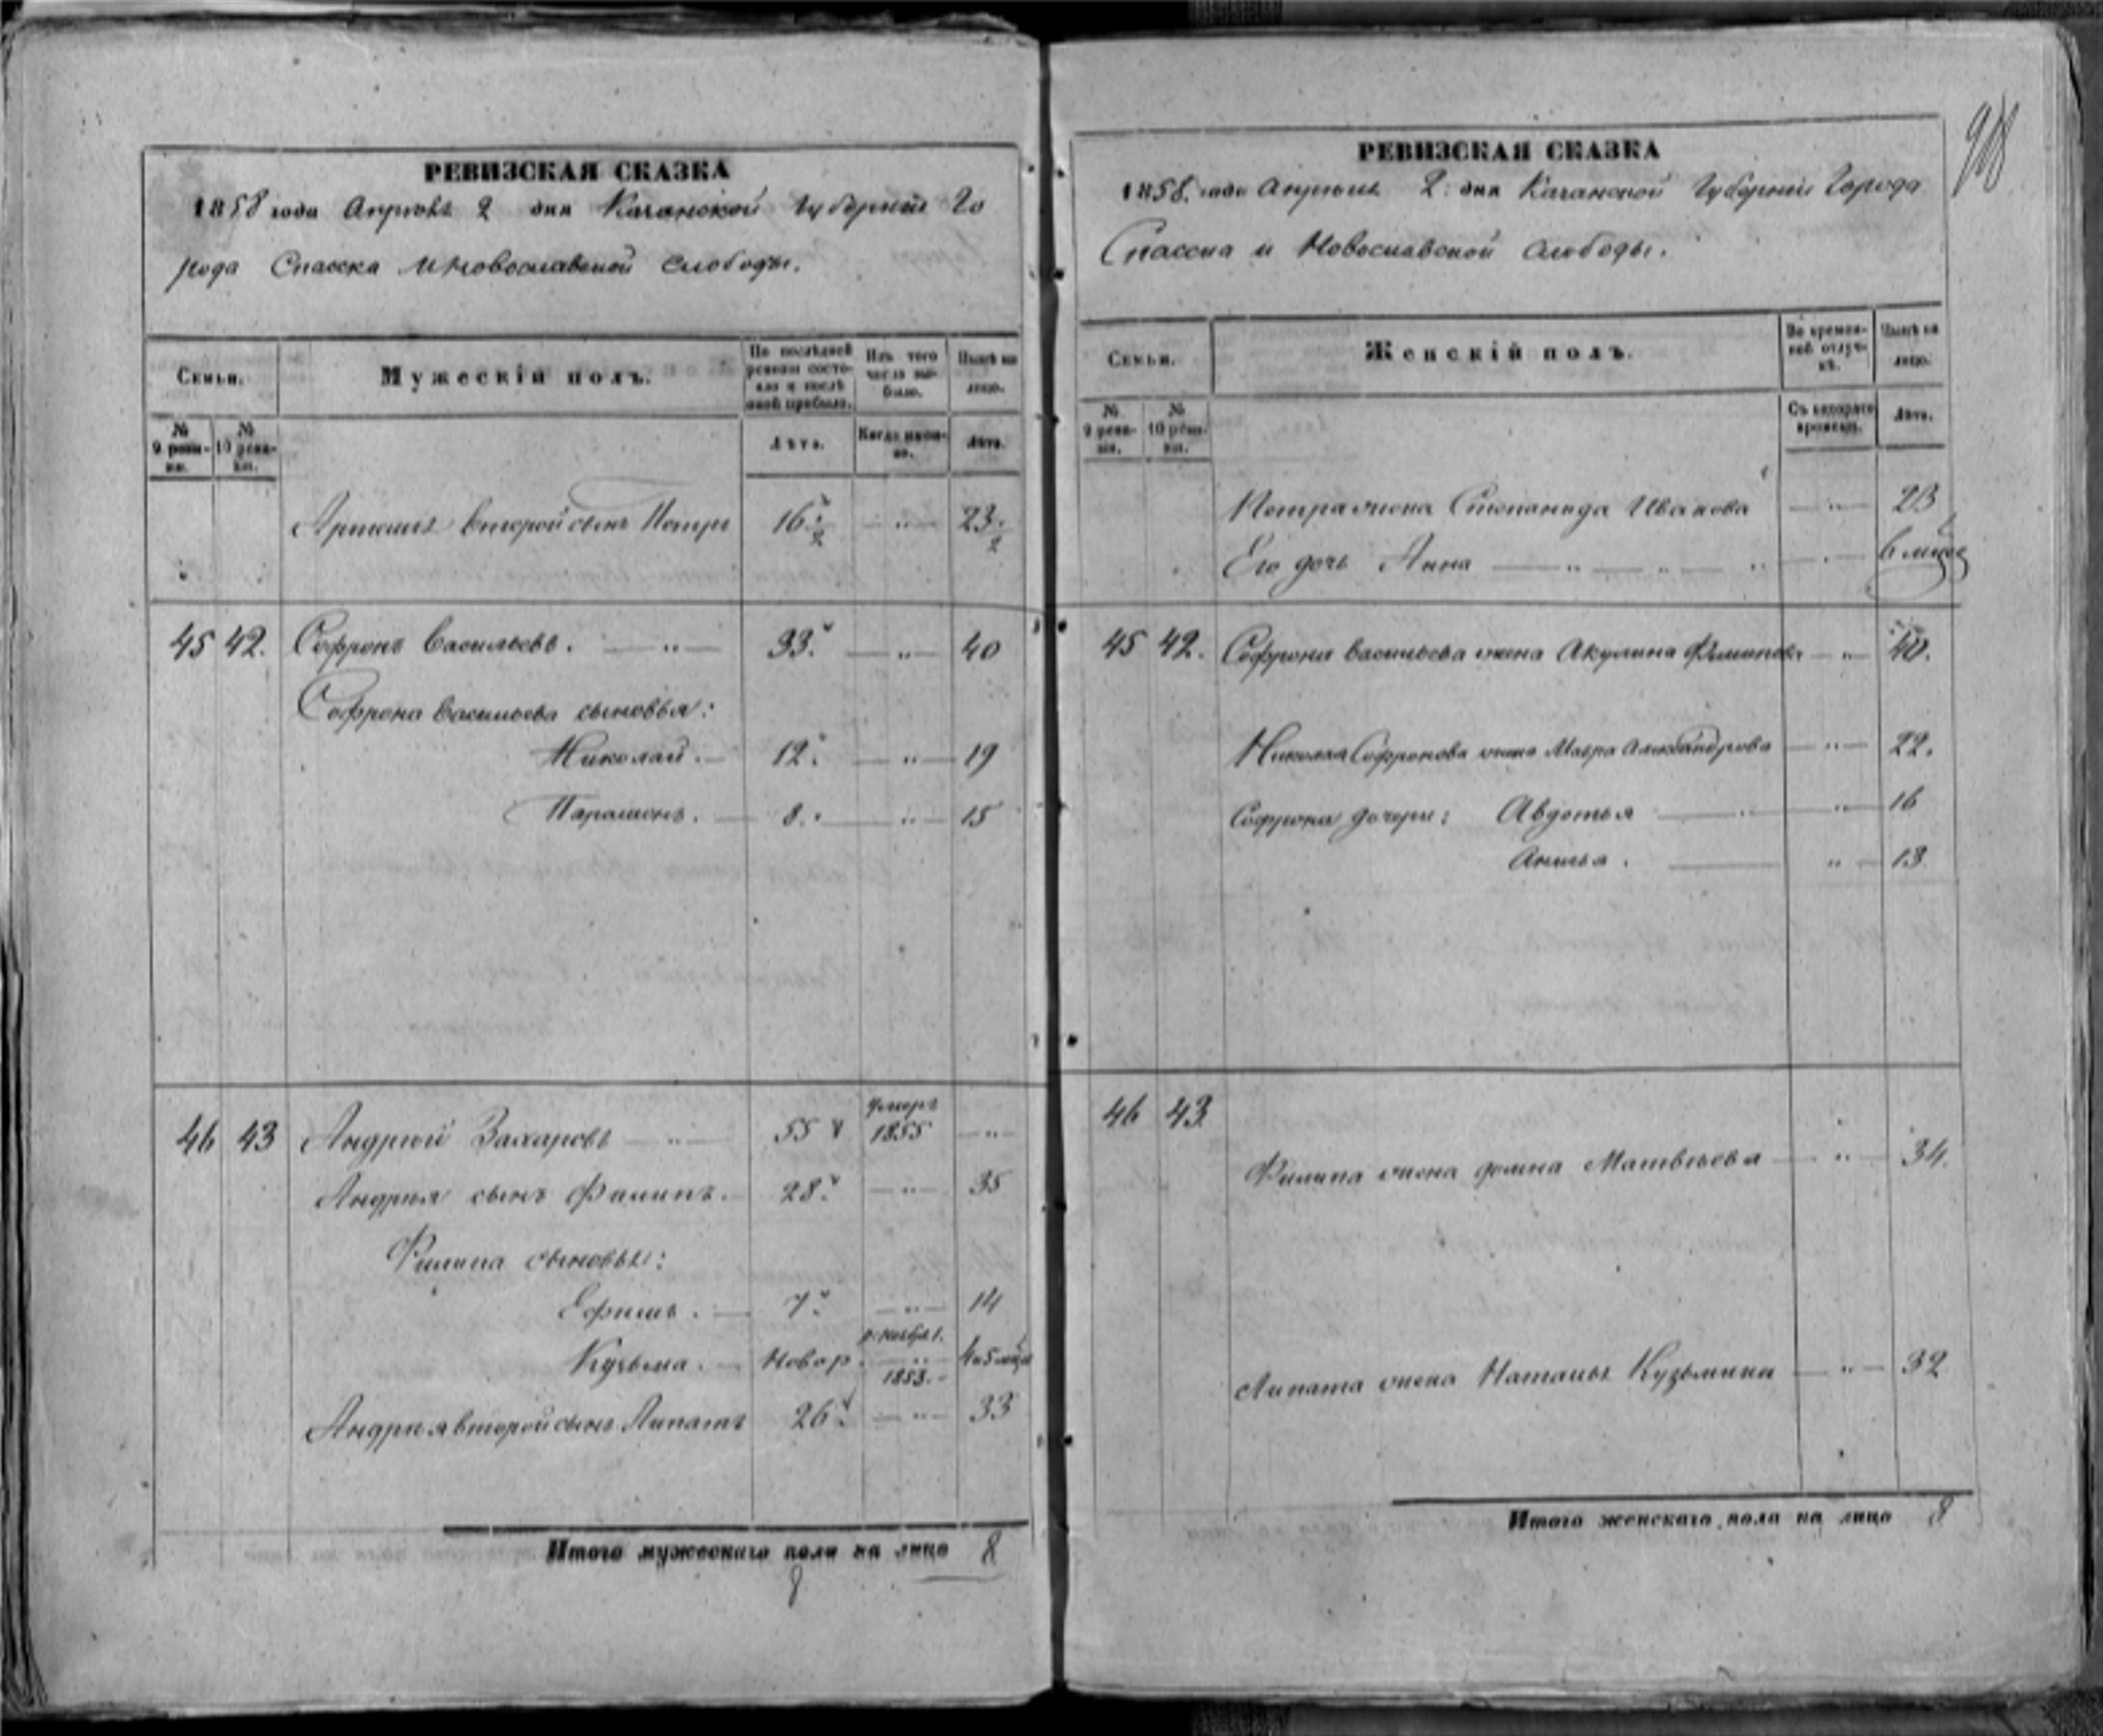 РЕВИЗСКАЯ СКАЗКА
1858 года Апреля 2 дня Казанской Губернии Го
рода Спасска и Новославской слободы.
Семьи.
Мужескій полъ.
По послѣдней ревизіи состояло и послѣ оной прибыло.
Изъ того числа выбыло.
Нынѣ на лицо.
№ 9 ревизіи.
№ 10 ревизіи.
Лѣта.
Когда именно.
Лѣта.
второй сынъ Петръ 16 1/2 — " — 23 1/2
45 42. Софронъ Васильевъ. — " — 33. — " — 40
Софрона Васильева сыновья:
Николай. — 12. — " — 19
Парамонъ. — 8. — " — 15
46 43 Андрей Захаровъ — " — 55 умеръ 1855 — " —
Андрея сынъ Филипъ. 28. — " — 35
Филипа сыновья:
Ефимъ. — 7. — " — 14
Кузьма. — Новор. 1853. 4 и 5 мѣся
Андрея второй сынъ Липатъ 26. — " — 33
Итого мужескаго пола на лицо 8
8
РЕВИЗСКАЯ СКАЗКА
1858. года Апреля 2. дня Казанской Губернии Города
Спасска и Новославской слободы.
Семьи.
Женскій полъ.
Во временной отлучкѣ.
Нынѣ на лицо.
№ 9 ревизіи.
№ 10 ревизіи.
Съ котораго времени.
Лѣта.
Петра жена Степанида Иванова — " — 23
Его дочь Анна — " — " — " — 6 мѣся
45 42. Софрона Васильева жена Акулина — " — 40.
Николая Софронова жена Мавра Александрова — " — 22.
Софрона дочери: Авдотья — " — 16
Анисья. — " — 13
46 43.
Филипа жена Матвеева — " — 34.
Липата жена Наталья Кузьмина — " — 32
Итого женскаго пола на лицо 8